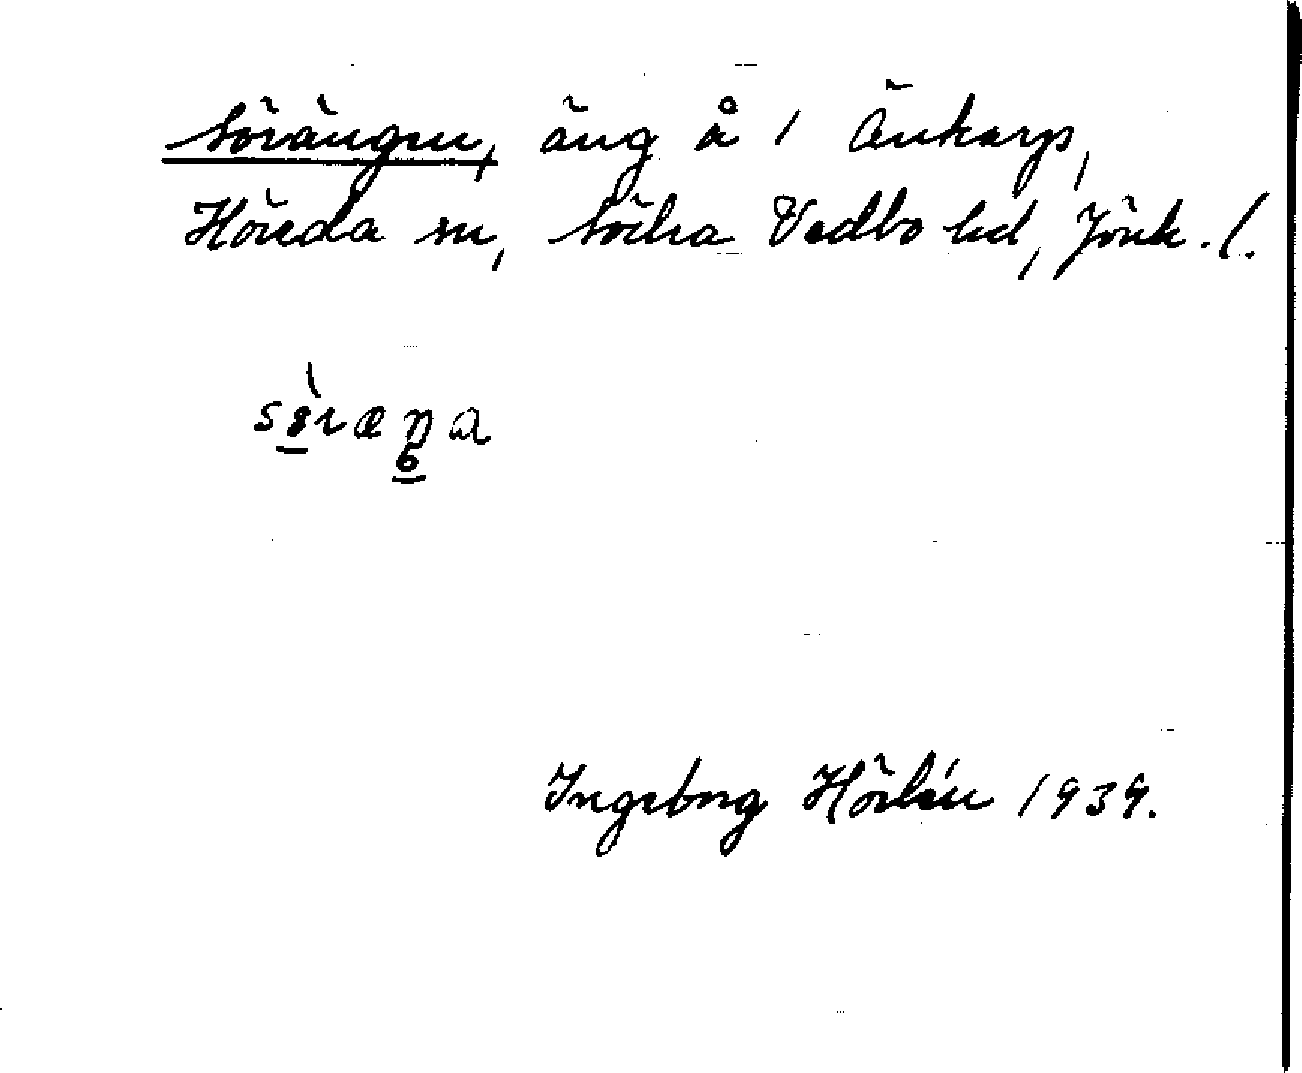 Sörängen, äng å 1 Änkarp,
Höreda sn, Södra Vedbo hd, Jönk. l.
Ingeborg Hörlén 1939.